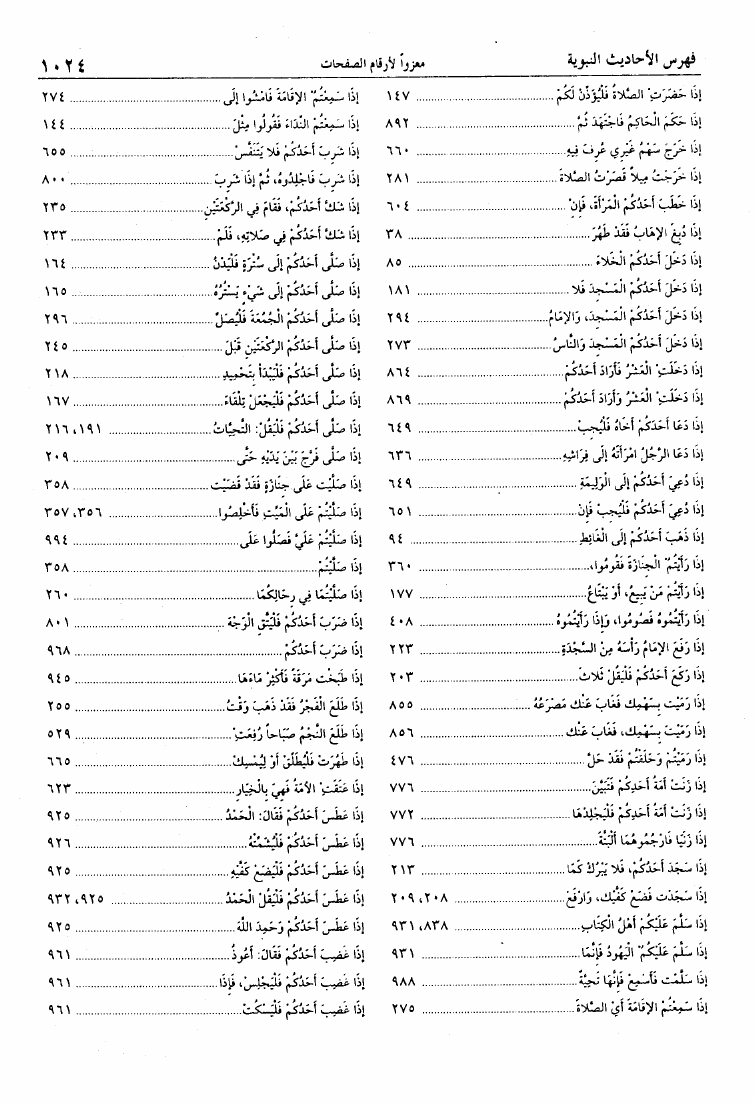 فهرس الأحاديث النبوية معزواً لأرقام الصفحات ١٠٢٤
إِذَا حَضَرَتِ الصَّلاةُ فَلْيُؤَذِّنْ لَكُمْ ........ ١٤٧
إِذَا حَكَمَ الْحَاكِمُ فَاجْتَهَدَ ثُمَّ ........ ٨٩٢
إِذَا خَرَجَ سَهْمُ غَيْرِي عُرِفَ فِيهِ ........ ٦٦٠
إِذَا خَرَجْتُ مِيلاً قَصَرْتُ الصَّلاةَ ........ ٢٨١
إِذَا خَطَبَ أَحَدُكُمُ الْمَرْأَةَ، فَإِنْ ........ ٦٠٤
إِذَا دُبِغَ الإِهَابُ فَقَدْ طَهُرَ ........ ٣٨
إِذَا دَخَلَ أَحَدُكُمُ الْخَلاءَ ........ ٨٥
إِذَا دَخَلَ أَحَدُكُمُ الْمَسْجِدَ فَلا ........ ١٨١
إِذَا دَخَلَ أَحَدُكُمُ الْمَسْجِدَ، وَالإِمَامُ ........ ٢٩٤
إِذَا دَخَلَ أَحَدُكُمُ الْمَسْجِدَ وَالنَّاسُ ........ ٢٧٣
إِذَا دَخَلَتِ الْعَشْرُ فَأَرَادَ أَحَدُكُمْ ........ ٨٦٤
إِذَا دَخَلَتِ الْعَشْرُ وَأَرَادَ أَحَدُكُمْ ........ ٨٦٩
إِذَا دَعَا أَحَدُكُمْ أَخَاهُ فَلْيُجِبْ ........ ٦٤٩
إِذَا دَعَا الرَّجُلُ امْرَأَتَهُ إِلَى فِرَاشِهِ ........ ٦٣٦
إِذَا دُعِيَ أَحَدُكُمْ إِلَى الْوَلِيمَةِ ........ ٦٤٩
إِذَا دُعِيَ أَحَدُكُمْ فَلْيُجِبْ فَإِنْ ........ ٦٥١
إِذَا ذَهَبَ أَحَدُكُمْ إِلَى الْغَائِطِ ........ ٩٤
إِذَا رَأَيْتُمُ الْجِنَازَةَ فَقُومُوا، ........ ٣٦٠
إِذَا رَأَيْتُمْ مَنْ يَبِيعُ، أَوْ يَبْتَاعُ ........ ١٧٧
إِذَا رَأَيْتُمُوهُ فَصُومُوا، وَإِذَا رَأَيْتُمُوهُ ........ ٤٠٨
إِذَا رَفَعَ الإِمَامُ رَأْسَهُ مِنَ السَّجْدَةِ ........ ٢٢٣
إِذَا رَكَعَ أَحَدُكُمْ فَلْيَقُلْ ثَلاثَ ........ ٢٠٣
إِذَا رَمَيْتَ بِسَهْمِكَ فَغَابَ عَنْكَ مَصْرَعُهُ ........ ٨٥٥
إِذَا رَمَيْتَ بِسَهْمِكَ، فَغَابَ عَنْكَ ........ ٨٥٦
إِذَا رَمَيْتُمْ وَحَلَقْتُمْ فَقَدْ حَلَّ ........ ٤٧٦
إِذَا زَنَتْ أَمَةُ أَحَدِكُمْ فَتَبَيَّنَ ........ ٧٧٦
إِذَا زَنَتْ أَمَةُ أَحَدِكُمْ فَلْيَجْلِدْهَا ........ ٧٧٢
إِذَا زَنَيَا فَارْجُمُوهُمَا أَلْبَتَّةَ ........ ٧٧٦
إِذَا سَجَدَ أَحَدُكُمْ، فَلا يَبْرُكْ كَمَا ........ ٢١٣
إِذَا سَجَدْتَ فَضَعْ كَفَّيْكَ، وَارْفَعْ ........ ٢٠٨، ٢٠٩
إِذَا سَلَّمَ عَلَيْكُمْ أَهْلُ الْكِتَابِ ........ ٨٣٨، ٩٣١
إِذَا سَلَّمَ عَلَيْكُمُ الْيَهُودُ فَإِنَّمَا ........ ٩٣١
إِذَا سَلَّمْتَ فَأَسْمِعْ فَإِنَّهَا تَحِيَّةٌ ........ ٩٨٨
إِذَا سَمِعْتُمُ الإِقَامَةَ أَيْ الصَّلاةَ ........ ٢٧٥
إِذَا سَمِعْتُمُ الإِقَامَةَ فَامْشُوا إِلَى ........ ٢٧٤
إِذَا سَمِعْتُمُ النِّدَاءَ فَقُولُوا مِثْلَ ........ ١٤٤
إِذَا شَرِبَ أَحَدُكُمْ فَلا يَتَنَفَّسْ ........ ٦٥٥
إِذَا شَرِبَ فَاجْلِدُوهُ، ثُمَّ إِذَا شَرِبَ ........ ٨٠٠
إِذَا شَكَّ أَحَدُكُمْ، فَقَامَ فِي الرَّكْعَتَيْنِ ........ ٢٣٥
إِذَا شَكَّ أَحَدُكُمْ فِي صَلاتِهِ، فَلَمْ ........ ٢٣٣
إِذَا صَلَّى أَحَدُكُمْ إِلَى سُتْرَةٍ فَلْيَدْنُ ........ ١٦٤
إِذَا صَلَّى أَحَدُكُمْ إِلَى شَيْءٍ يَسْتُرُهُ ........ ١٦٥
إِذَا صَلَّى أَحَدُكُمُ الْجُمُعَةَ فَلْيُصَلِّ ........ ٢٩٦
إِذَا صَلَّى أَحَدُكُمُ الرَّكْعَتَيْنِ قَبْلَ ........ ٢٤٥
إِذَا صَلَّى أَحَدُكُمْ فَلْيَبْدَأْ بِتَحْمِيدِ ........ ٢١٨
إِذَا صَلَّى أَحَدُكُمْ فَلْيَجْعَلْ تِلْقَاءَ ........ ١٦٧
إِذَا صَلَّى أَحَدُكُمْ فَلْيَقُلْ: التَّحِيَّاتُ ........ ١٩١، ٢١٦
إِذَا صَلَّى فَرَّجَ بَيْنَ يَدَيْهِ حَتَّى ........ ٢٠٩
إِذَا صَلَّيْتَ عَلَى جِنَازَةٍ فَقَدْ قَضَيْتَ ........ ٣٥٨
إِذَا صَلَّيْتُمْ عَلَى الْمَيِّتِ فَأَخْلِصُوا ........ ٣٥٦، ٣٥٧
إِذَا صَلَّيْتُمْ عَلَيَّ فَصَلُّوا عَلَى ........ ٩٩٤
إِذَا صَلَّيْتُمْ ........ ٣٥٨
إِذَا صَلَّيْتُمَا فِي رِحَالِكُمَا ........ ٢٦٠
إِذَا ضَرَبَ أَحَدُكُمْ فَلْيَتَّقِ الْوَجْهَ ........ ٨٠١
إِذَا ضَرَبَ أَحَدُكُمْ ........ ٩٦٨
إِذَا طَبَخْتَ مَرَقَةً فَأَكْثِرْ مَاءَهَا ........ ٩٤٥
إِذَا طَلَعَ الْفَجْرُ فَقَدْ ذَهَبَ وَقْتُ ........ ٢٥٥
إِذَا طَلَعَ النَّجْمُ صَبَاحاً رُفِعَتِ ........ ٥٢٩
إِذَا طَهُرَتْ فَلْيُطَلِّقْ أَوْ لِيُمْسِكْ ........ ٦٦٥
إِذَا عَتَقَتِ الأَمَةُ فَهِيَ بِالْخِيَارِ ........ ٦٢٣
إِذَا عَطَسَ أَحَدُكُمْ فَقَالَ: الْحَمْدُ ........ ٩٢٥
إِذَا عَطَسَ أَحَدُكُمْ فَلْيُشَمِّتْهُ ........ ٩٢٦
إِذَا عَطَسَ أَحَدُكُمْ فَلْيَضَعْ كَفَّيْهِ ........ ٩٢٥
إِذَا عَطَسَ أَحَدُكُمْ فَلْيَقُلْ الْحَمْدُ ........ ٩٢٥، ٩٣٢
إِذَا عَطَسَ أَحَدُكُمْ وَحَمِدَ اللَّهَ ........ ٩٢٥
إِذَا غَضِبَ أَحَدُكُمْ فَقَالَ: أَعُوذُ ........ ٩٦١
إِذَا غَضِبَ أَحَدُكُمْ فَلْيَجْلِسْ، فَإِذَا ........ ٩٦١
إِذَا غَضِبَ أَحَدُكُمْ فَلْيَسْكُتْ ........ ٩٦١